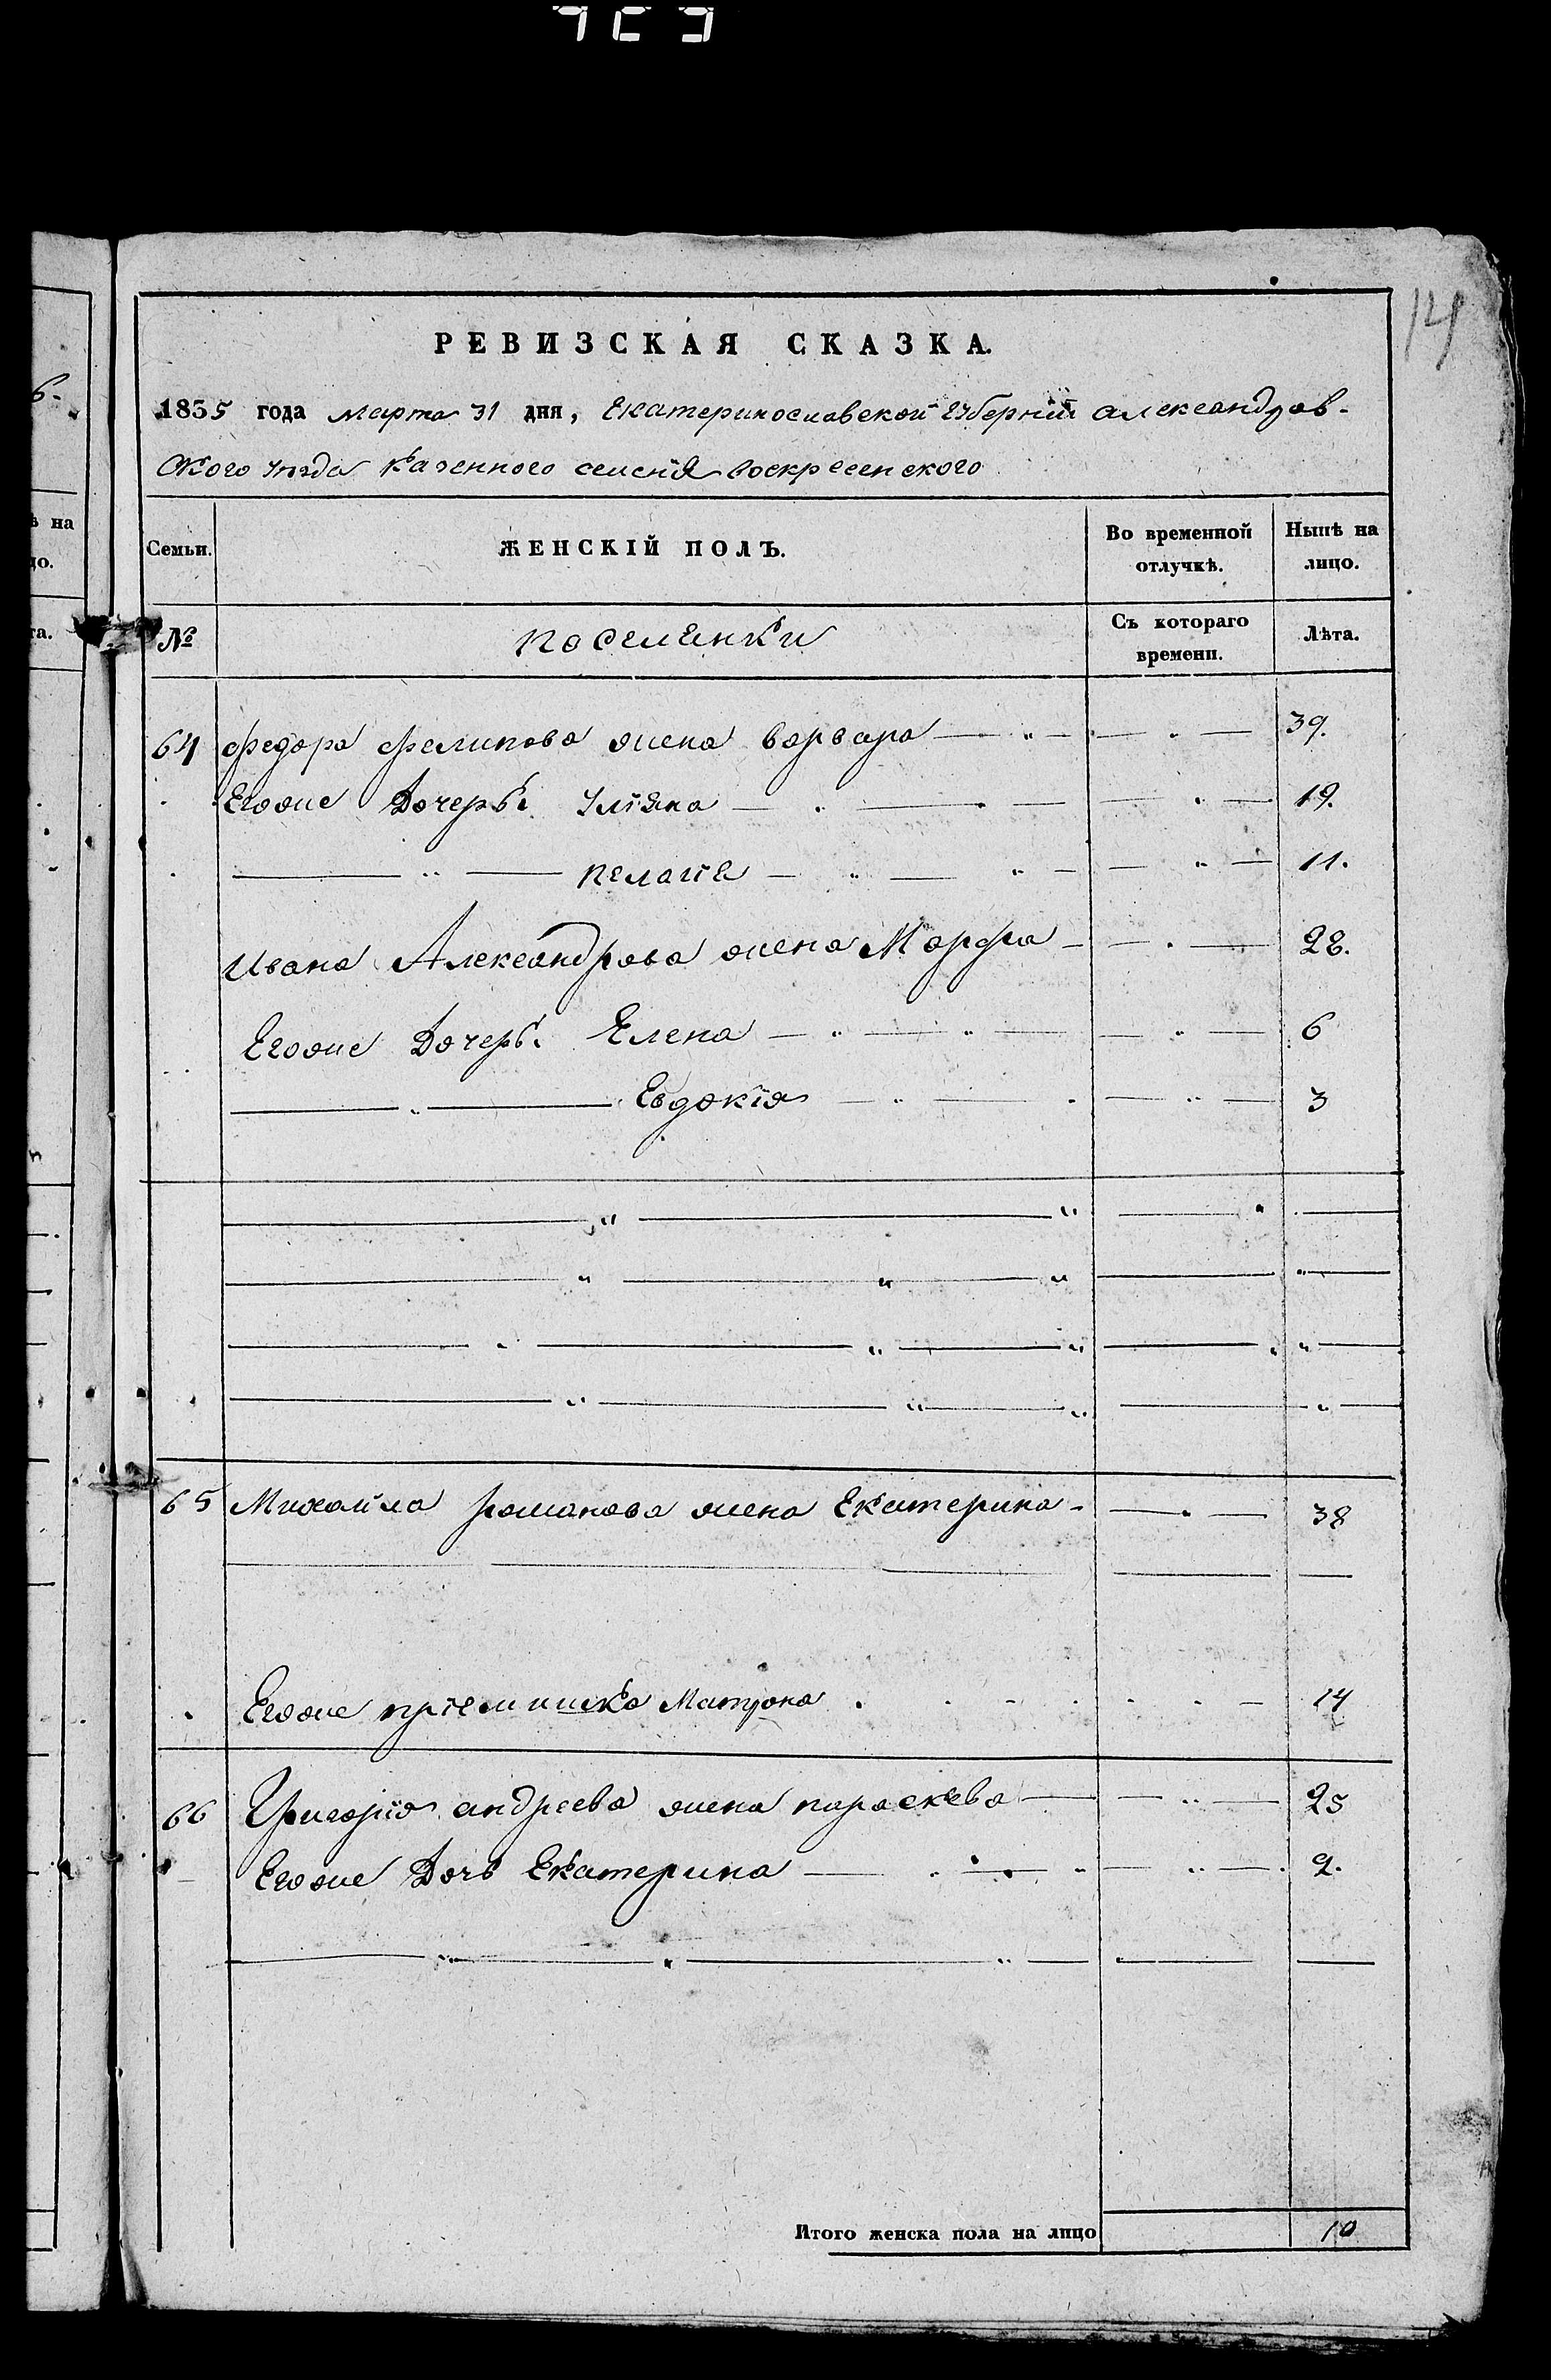 14
РЕВИЗСКАЯ СКАЗКА.
1835 года марта 31 дня, Екатеринославской губерніи александров-
ского уезда казенного селенія воскресенского
Семьи. ЖЕНСКІЙ ПОЛЪ. Во временной отлучкѣ. Нынѣ на лицо.
№ поселенки Съ котораго времени. Лѣта.
64 федора фелипова жена варвара 39.
Егоже Дочери: Уліяна 19.
пелагіе 11.
Ивана Александрова жена Марфа 28.
Егоже Дочери: Елена 6
Евдокія 3
65 Михаила романова жена Екатерина 38
Егоже пріемишка Матрона 14
66 Григорія андреева жена параскева 25
Егоже Дочь Екатерина 2.
Итого женска пола на лицо 10